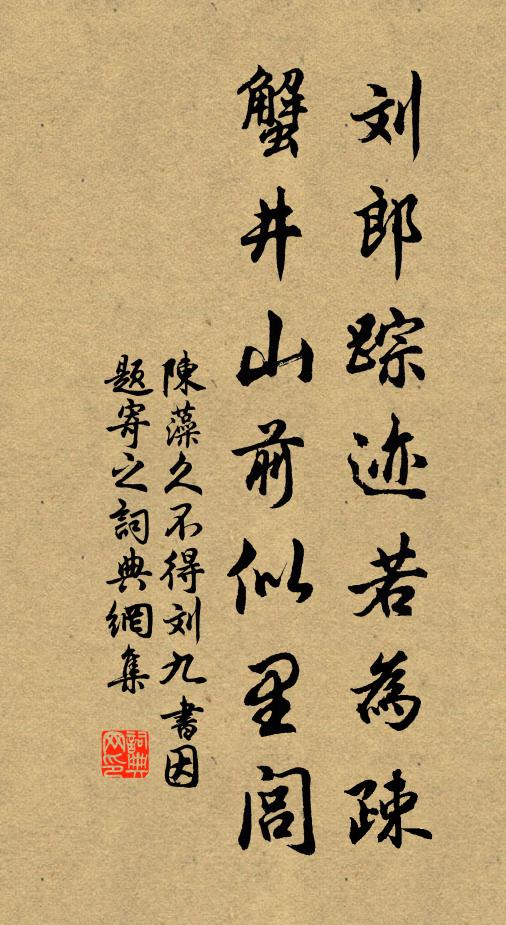 刘郎踪迹若為疎
蟹井山前似里闾
陳藻久不得刘九書因
题寄之詞典網集
詞典网印